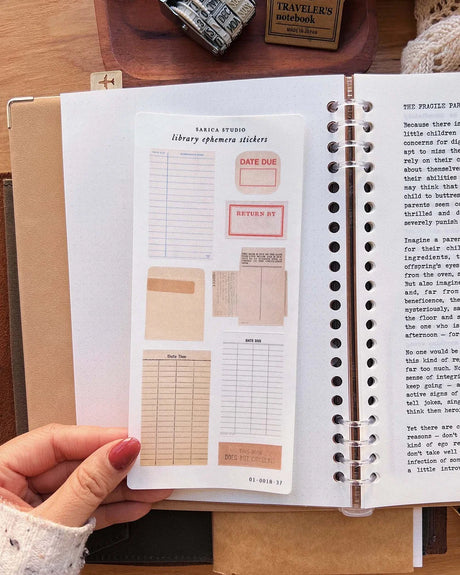 TRAVELER'S
notebook
MADE IN JAPAN
SARICA STUDIO
library ephemera stickers
DATE DUE
RETURN BY
Date Due
DATE DUE
THIS BOOK
DOES NOT CIRCULATE
01-0018-37
THE FRAGILE PAR
Because there is
little children
concerns for dig
apt to miss the
rely on their c
about themselves
their abilities
may think that
child to buttress
parents seem c
thrilled and d
severely punish
Imagine a paren
for their chil
ingredients, t
offspring's eyes
from the oven, s
But also imagine
and, far from
beneficence, the
mysteriously, sa
the floor and s
the one who is
afternoon – for
No one would be
this kind of re
far too much. No
sense of integri
keep going – a
active signs of
tell jokes, sing
think them heroi
Yet there are c
reasons – don't
kind of ego re
don't take well
infection of som
a little introv